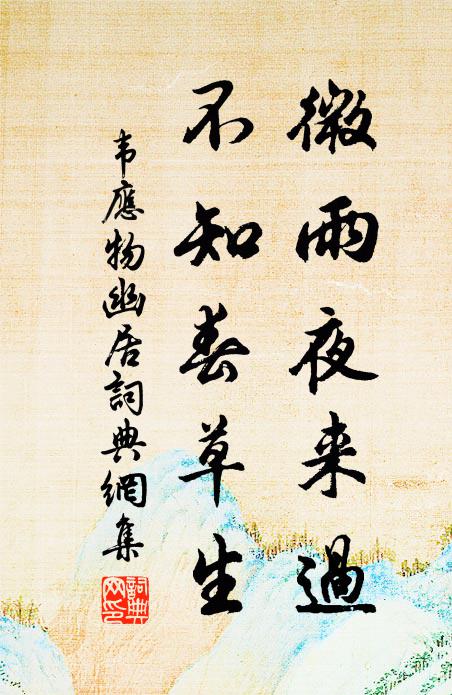 微雨夜来過
不知春草生
韦應物幽居詞典網集
詞典
网印